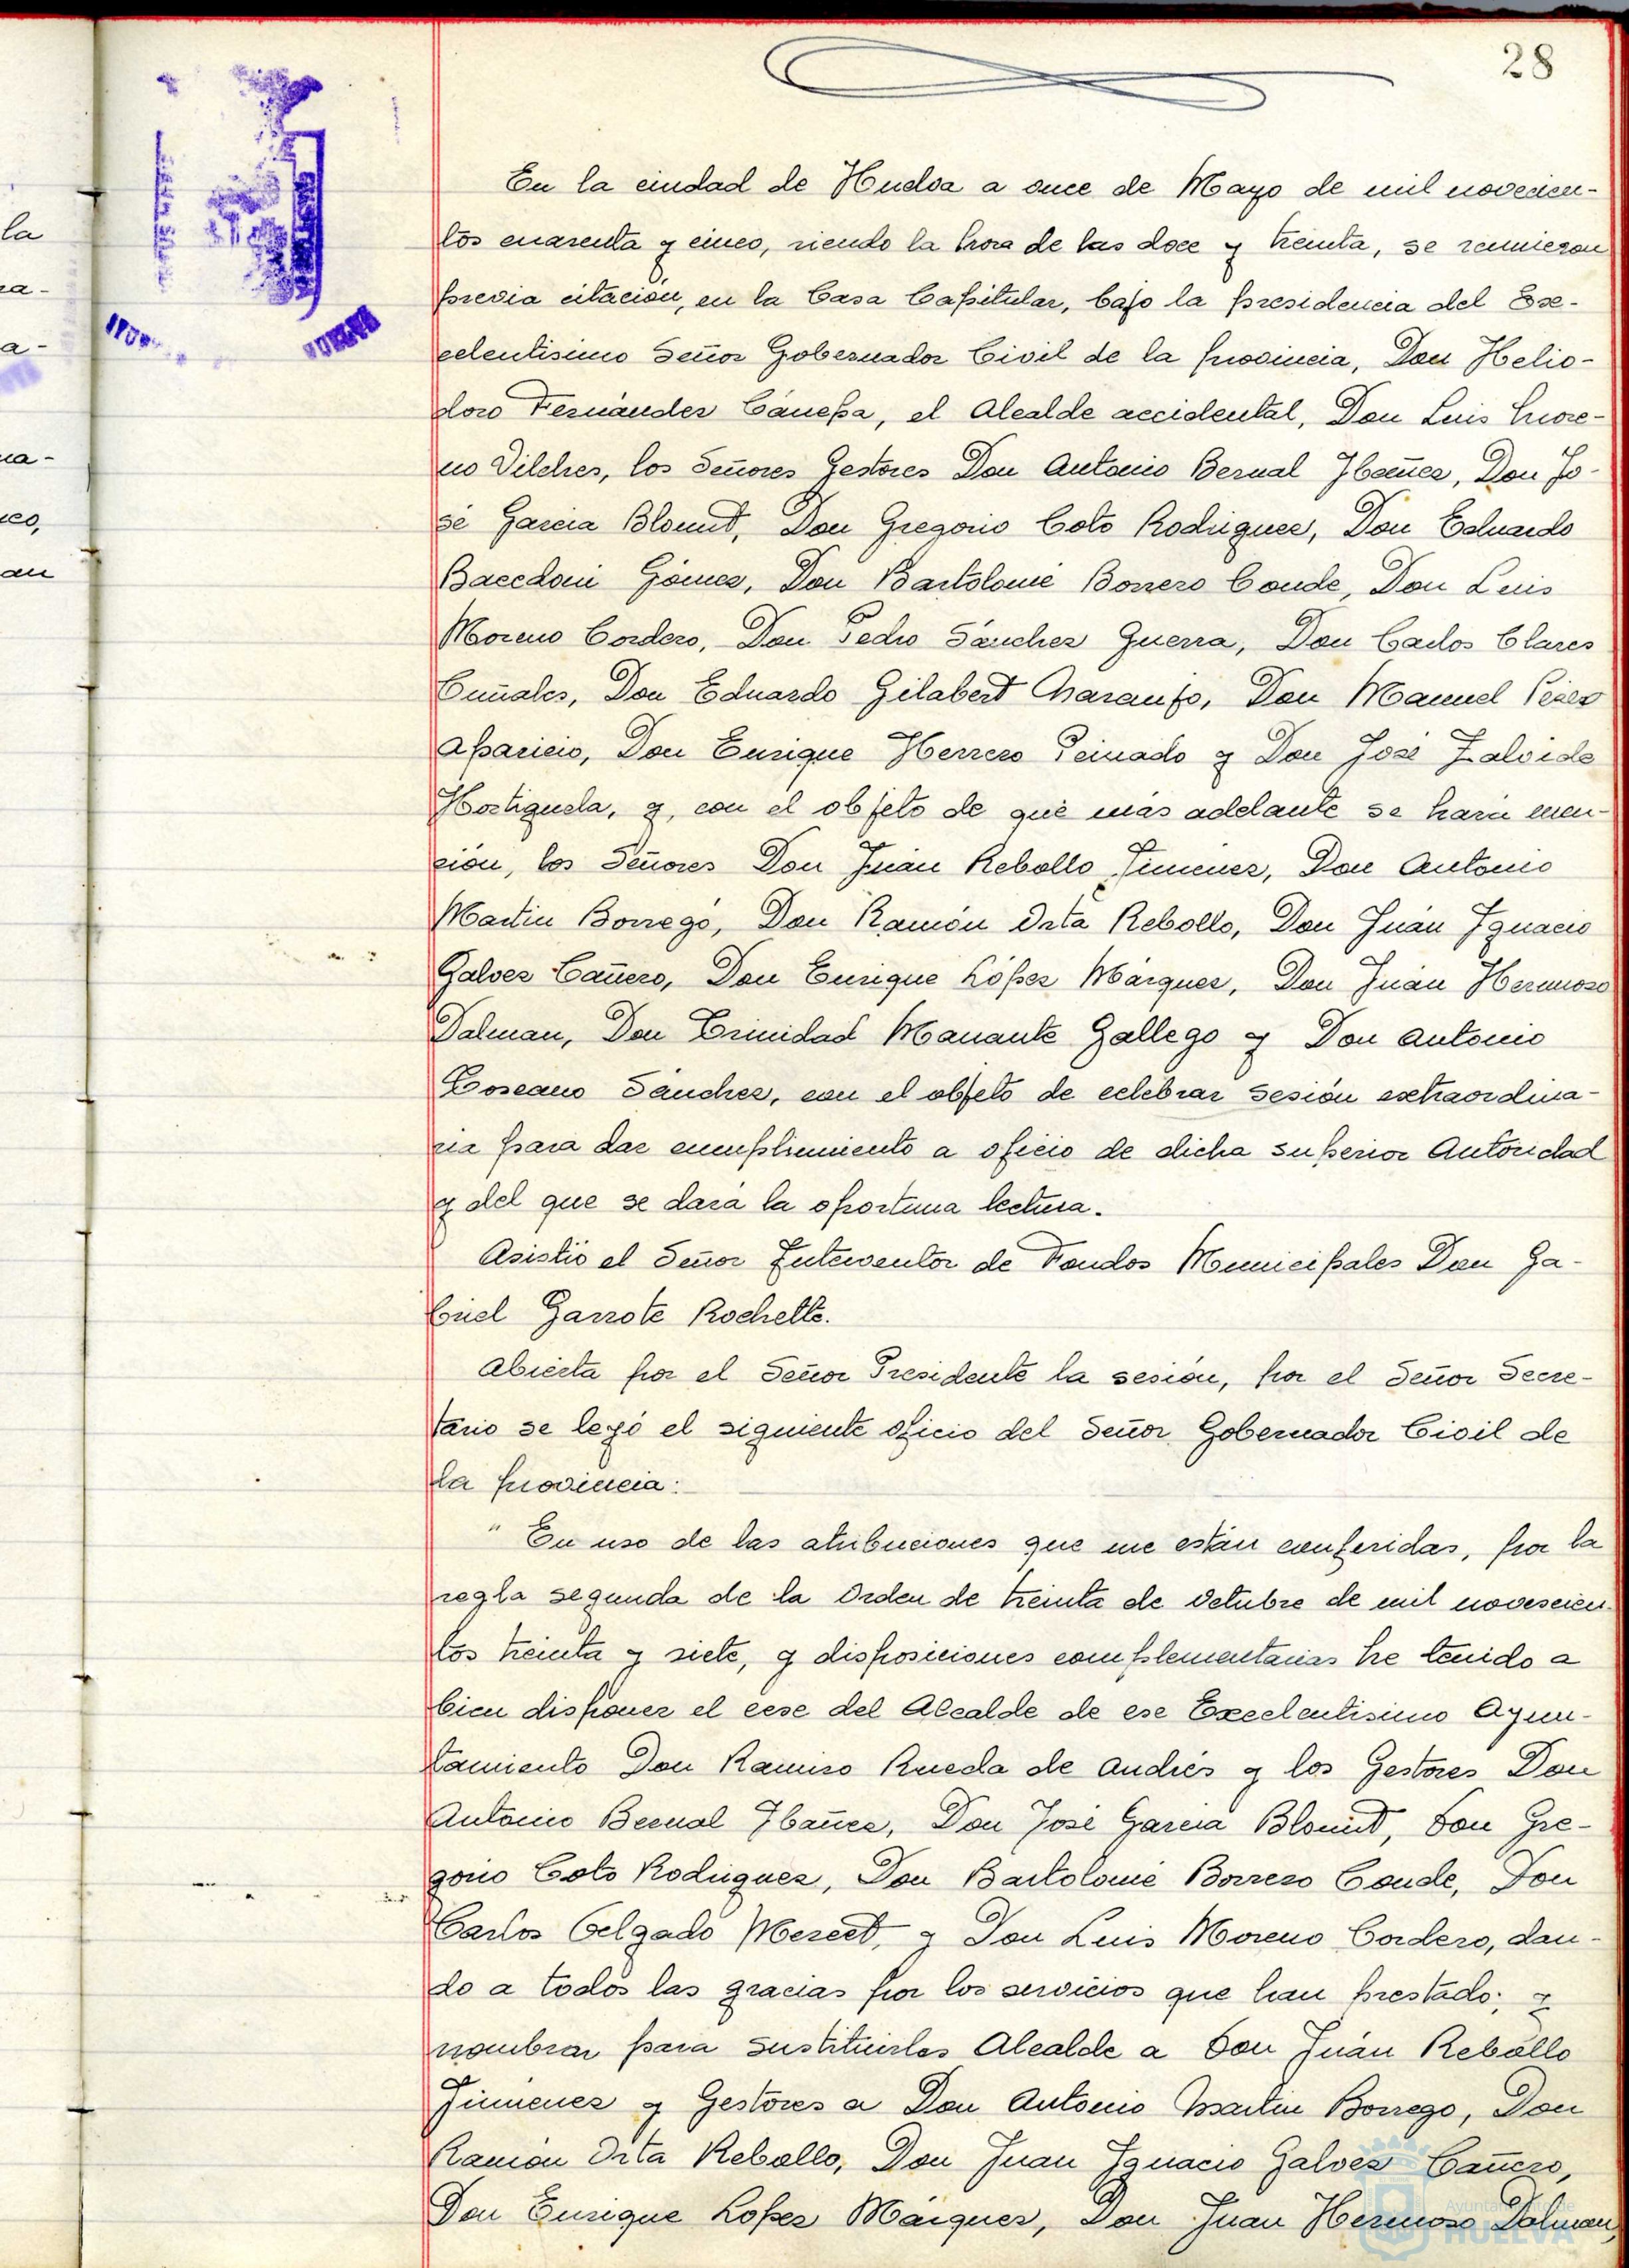 28
En la ciudad de Huelva a once de Mayo de mil novecien-
tos cuarenta y cinco, siendo la hora de las doce y treinta, se reunieron
previa citación, en la Casa Capitular, bajo la presidencia del Exc-
celentisimo Señor Gobernador Civil de la provincia, Don Helio-
doro Fernández Cánepa, el Alcalde accidental, Don Luis More-
no Vilches, los Señores Gestores Don Antonio Bernal Ibañez, Don Jo-
sé García Blount, Don Gregorio Coto Rodriguez, Don Eduardo
Baccdoni Gómez, Don Bartolomé Borrero Conde, Don Luis
Moreno Cordero, Don Pedro Sánchez Guerra, Don Carlos Clares
Cuñales, Don Eduardo Gilabert Naranjo, Don Manuel Pérez
Aparicio, Don Enrique Herrero Peinado y Don José Zalvide
Hortiguela, y, con el objeto de qué más adelante se hara men-
ción, los Señores Don Juán Rebollo Jimenez, Don Antonio
Martin Borrego, Don Ramón Orta Rebollo, Don Juán Ignacio
Galvez Cañero, Don Enrique López Márquez, Don Juán Hermoso
Dalman, Don Trinidad Manante Gallego y Don Antonio
Toscano Sánchez, con el objeto de celebrar sesión extraordina-
ria para dar cumplimiento a oficio de dicha superior Autoridad
y del que se dará la oportuna lectura.
Asistió el Señor Interventor de Fondos Municipales Don Ga-
briel Garrote Rochelte.
Abierta por el Señor Presidente la sesión, por el Señor Secre-
tario se leyó el siguiente oficio del Señor Gobernador Civil de
la provincia:
" En uso de las atribuciones que me están conferidas, por la
regla segunda de la Orden de treinta de Octubre de mil novescien-
tos treinta y siete, y disposiciones complementarias he tenido a
bien disponer el cese del Alcalde de ese Excelentisimo Ayun-
tamiento Don Ramiro Rueda de Andrés y los Gestores Don
Antonio Bernal Ibañez, Don José García Blount, Don Gre-
gorio Coto Rodriguez, Don Bartolomé Borrero Conde, Don
Carlos Delgado Merect, y Don Luis Moreno Cordero, dan-
do a todos las gracias por los servicios que han prestado; y
nombrar para sustituirles Alcalde a Don Juán Rebollo
Jimenez y Gestores a Don Antonio Martin Borrego, Don
Ramón Orta Rebollo, Don Juan Ignacio Galvez Cañero,
Don Enrique Lopez Márquez, Don Juan Hermoso Dalman,
Ayuntamiento de
HUELVA